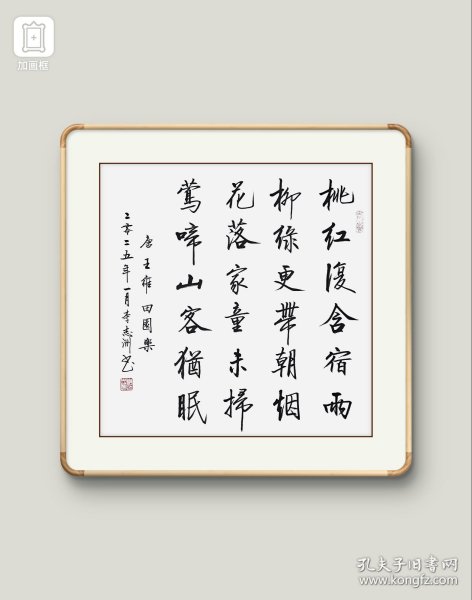 加画框
桃红復含宿雨
柳緑更帶朝烟
花落家童未掃
鶯啼山客猶眠
唐王維田園樂
二零二五年一月李志洲书
孔夫子旧书网
www.kongfz.com